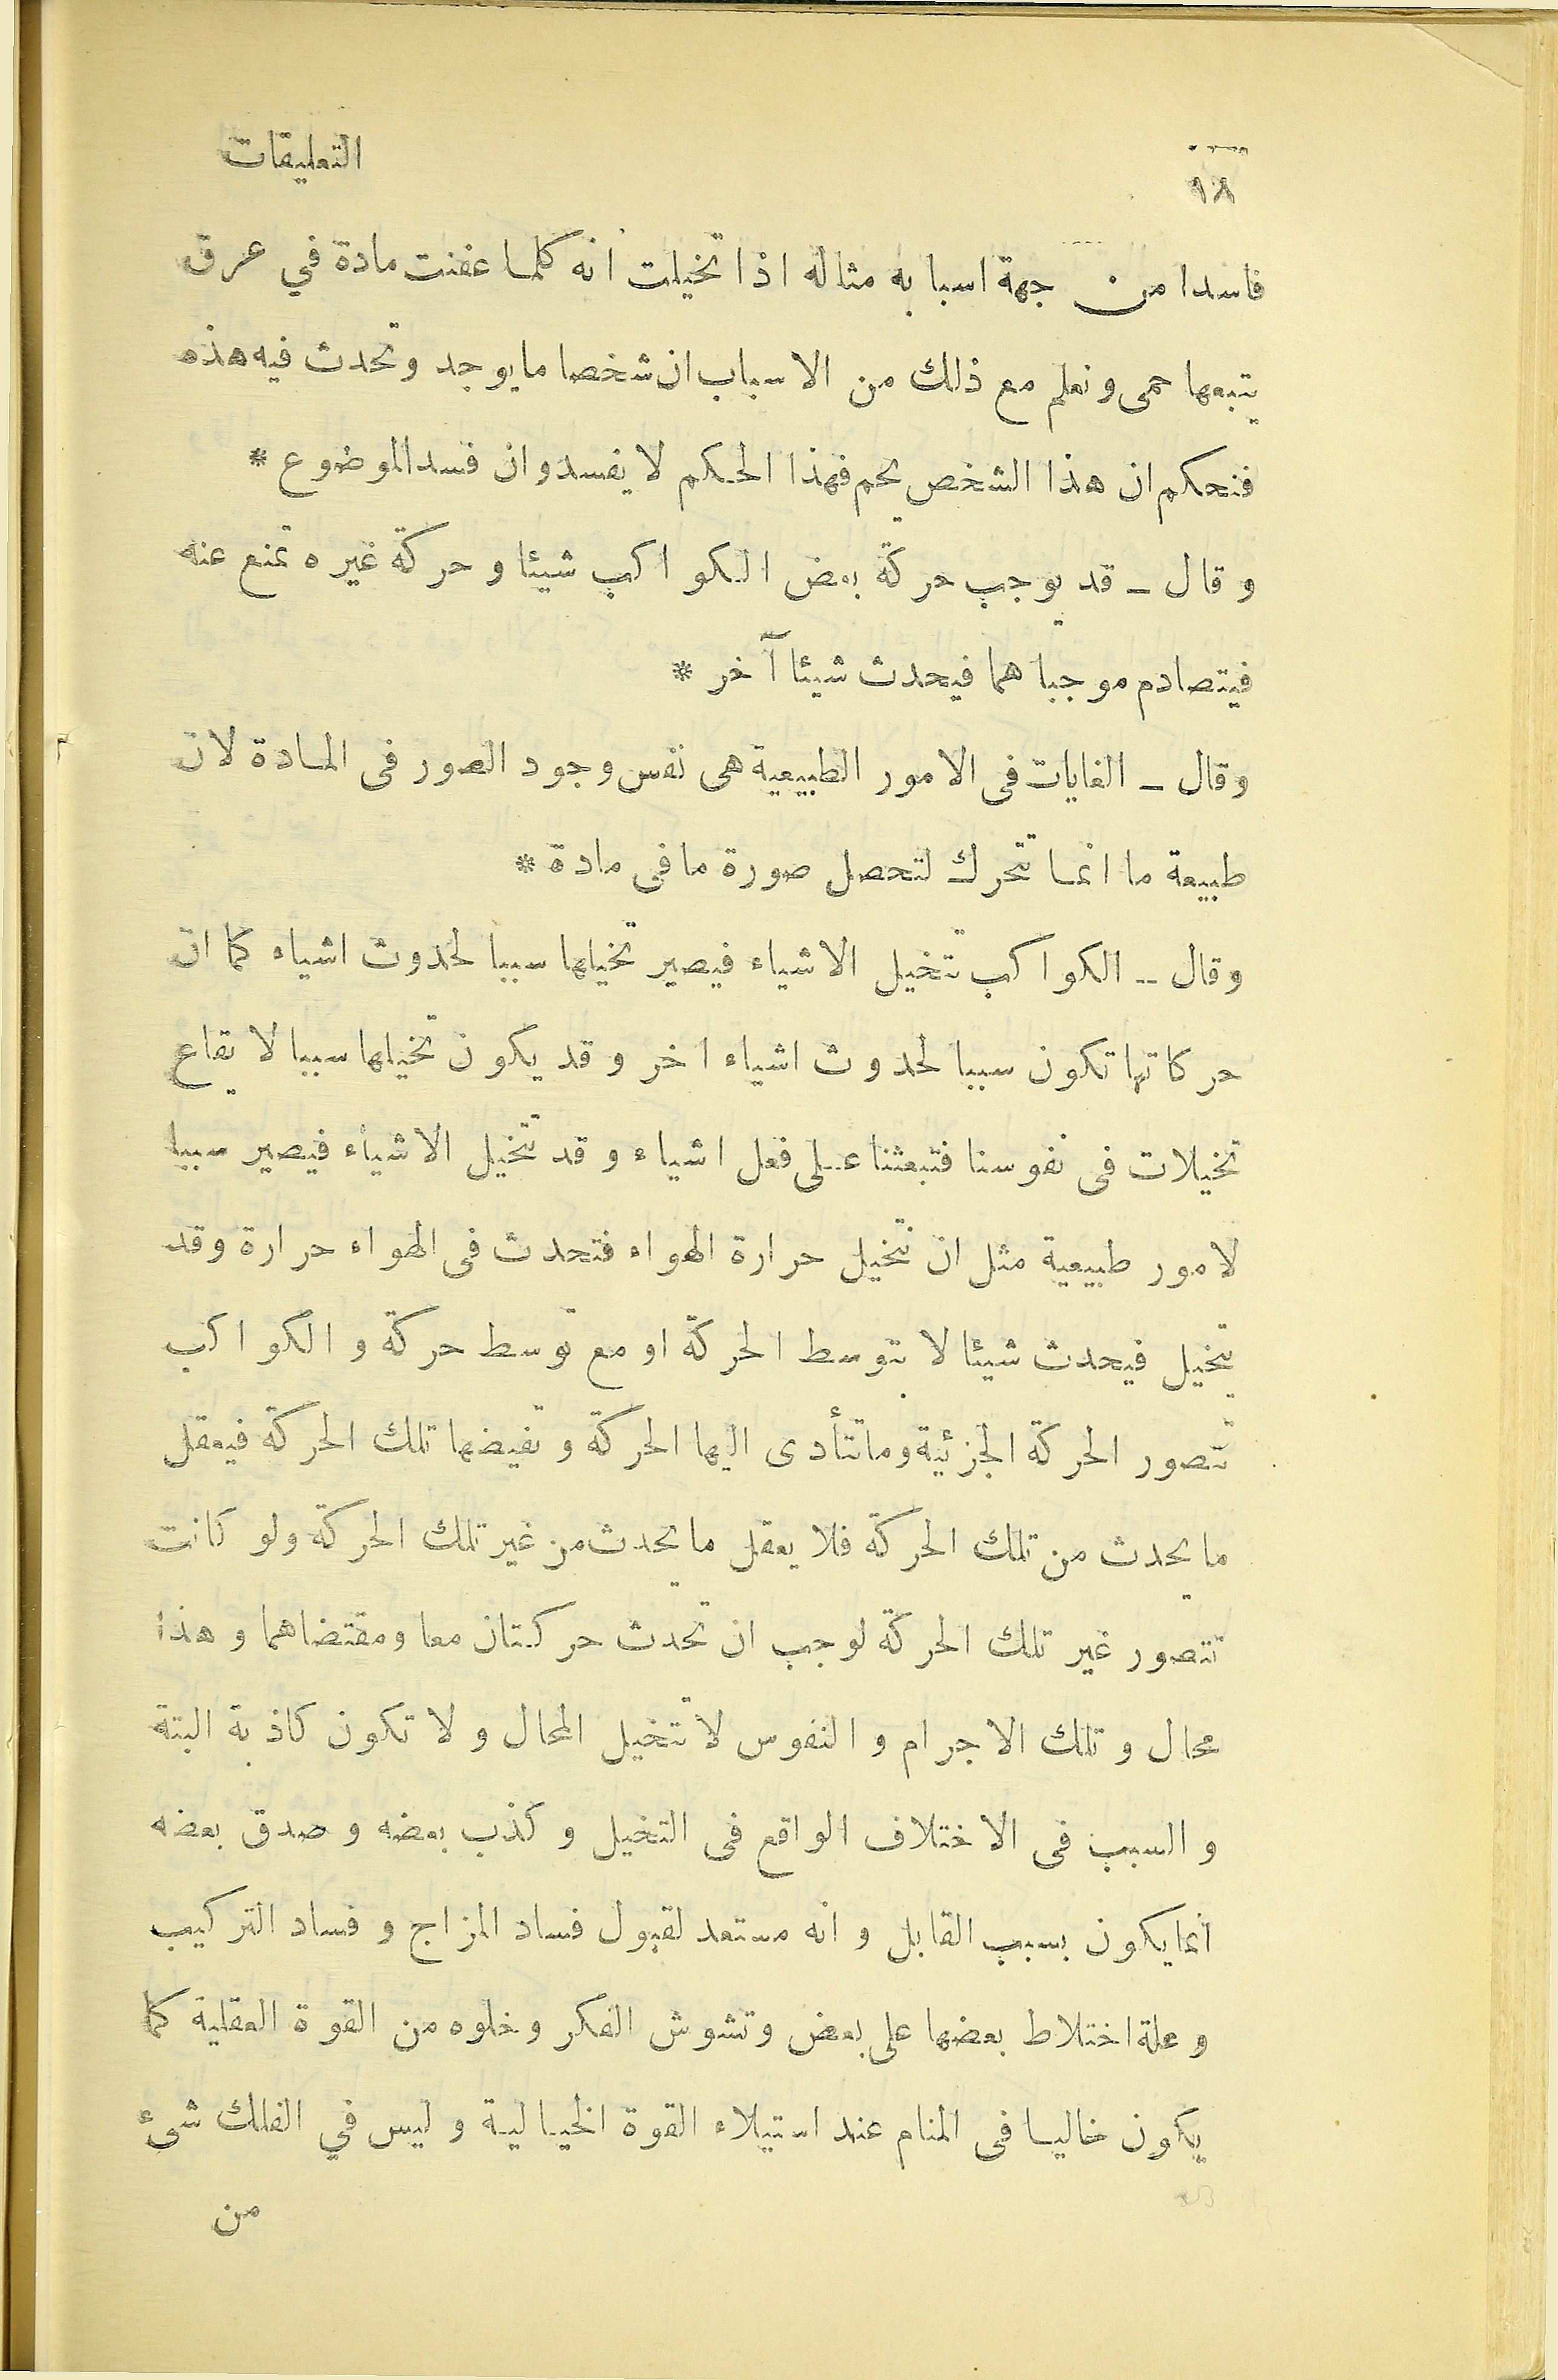 ١٨
التعليقات
فاسدا من جهة اسبابه مثاله اذا تخيلت انه كلما عفنت مادة في عرق
يتبعها حمى ونعلم مع ذلك من الاسباب ان شخصا ما يوجد وتحدث فيه هذه
فنحكم ان هذا الشخص يحم فهذا الحكم لا يفسد وان فسد الموضوع *
وقال ـ قد يوجب حركة بعض الكواكب شيئا وحركة غيره تمنع عنه
فيتصادم موجباهما فيحدث شيئا آخر *
وقال ـ الغايات فى الامور الطبيعية هى نفس وجود الصور فى المادة لان
طبيعة ما انما تتحرك لتحصل صورة ما فى مادة *
وقال ـ الكواكب تتخيل الاشياء فيصير تخيلها سببا لحدوث اشياء كما ان
حركاتها تكون سببا لحدوث اشياء اخر وقد يكون تخيلها سببا لايقاع
تخيلات فى نفوسنا فتبعثنا على فعل اشياء وقد تتخيل الاشياء فيصير سببا
لامور طبيعية مثل ان تتخيل حرارة الهواء فتحدث فى الهواء حرارة وقد
يتخيل فيحدث شيئا لا بتوسط الحركة او مع توسط حركة والكواكب
تتصور الحركة الجزئية وما تتأدى اليها الحركة وتفيضها تلك الحركة فيعقل
ما يحدث من تلك الحركة فلا يعقل ما يحدث من غير تلك الحركة ولو كانت
تتصور غير تلك الحركة لوجب ان تحدث حركتان معا ومقتضاهما وهذا
محال وتلك الاجرام والنفوس لا تتخيل المحال ولا تكون كاذبة البتة
والسبب فى الاختلاف الواقع فى التخيل وكذب بعضه وصدق بعضه
انما يكون بسبب القابل وانه مستعد لقبول فساد المزاج وفساد التركيب
وعلة اختلاط بعضها على بعض وتشوش الفكر وخلوه من القوة العقلية كما
يكون خاليا فى المنام عند استيلاء القوة الخيالية وليس في الفلك شىء
من